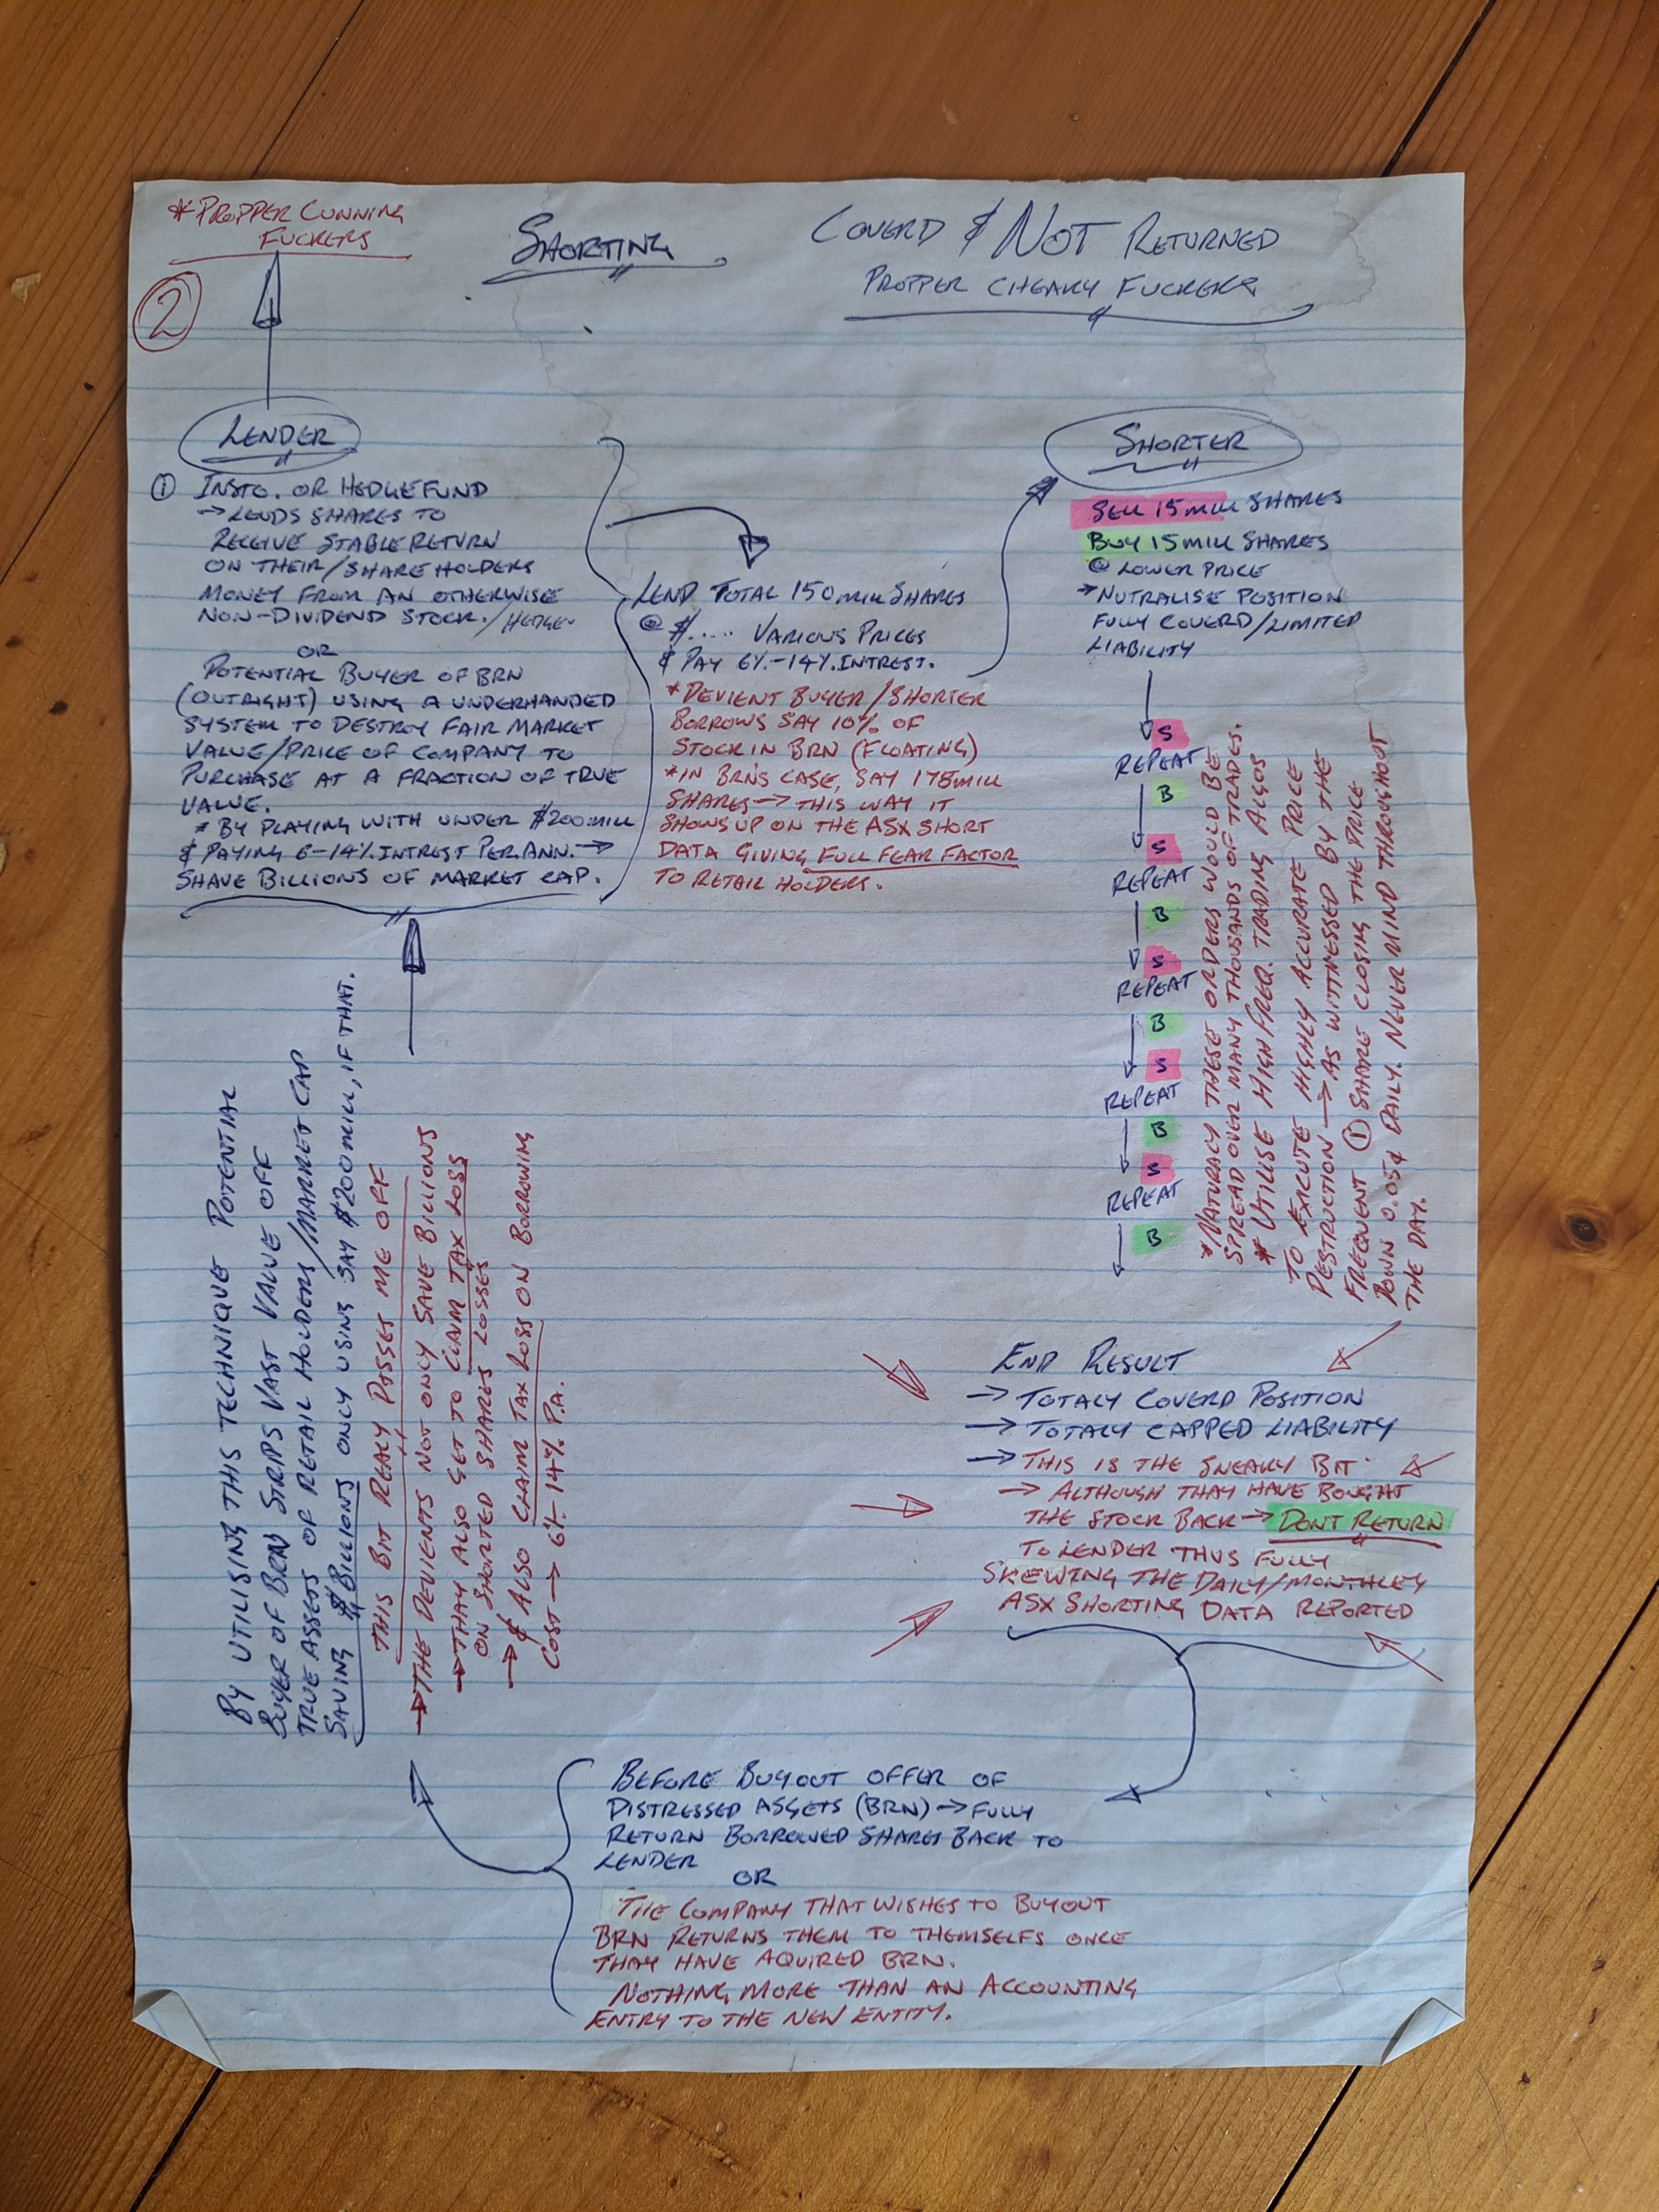 * PROPPER CUNNING
FUCKERS
②
SHORTING
COVERD & NOT RETURNED
PROPPER CHEAKY FUCKERS
LENDER
① INSTO. OR HEDGEFUND
→ LENDS SHARES TO
RECEIVE STABLE RETURN
ON THEIR/SHARE HOLDERS
MONEY FROM AN OTHERWISE
NON-DIVIDEND STOCK./HEDGE.
OR
POTENTIAL BUYER OF BRN
(OUTRIGHT) USING A UNDERHANDED
SYSTEM TO DESTROY FAIR MARKET
VALUE/PRICE OF COMPANY TO
PURCHASE AT A FRACTION OF TRUE
VALUE.
* BY PLAYING WITH UNDER $200MILL
& PAYING 6-14% INTREST PER.ANN. →
SHAVE BILLIONS OF MARKET CAP.
LEND TOTAL 150MILL SHARES
@ $..... VARIOUS PRICES
& PAY 6%-14% INTREST.
* DEVIENT BUYER/SHORTER
BORROWS SAY 10% OF
STOCK IN BRN (FLOATING)
* IN BRN'S CASE, SAY 178MILL
SHARES → THIS WAY IT
SHOWS UP ON THE ASX SHORT
DATA GIVING FULL FEAR FACTOR
TO RETAIL HOLDERS.
SHORTER
SELL 15MILL SHARES
BUY 15MILL SHARES
@ LOWER PRICE
→ NUTRALISE POSITION
FULLY COVERD/LIMITED
LIABILITY
S
REPEAT
B
S
REPEAT
B
S
REPEAT
B
S
REPEAT
B
S
REPEAT
B
* NATURALY THESE ORDERS WOULD BE
SPREAD OVER MANY THOUSANDS OF TRADES.
* UTILISE HIGH FREQ. TRADING ALGOS
TO EXECUTE HIGHLY ACCURATE PRICE
DESTRUCTION → AS WITNESSED BY THE
FREQUENT ① SHARE CLOSING THE PRICE
DOWN 0.05¢ DAILY. NEVER MIND THROUGHOUT
THE DAY.
END RESULT
→ TOTALY COVERD POSITION
→ TOTALY CAPPED LIABILITY
→ THIS IS THE SNEAKY BIT.
→ ALTHOUGH THAY HAVE BOUGHT
THE STOCK BACK → DONT RETURN
TO LENDER THUS FULLY
SKEWING THE DAILY/MONTHLEY
ASX SHORTING DATA REPORTED
BEFORE BUYOUT OFFER OF
DISTRESSED ASSETS (BRN) → FULLY
RETURN BORROWED SHARES BACK TO
LENDER
OR
THE COMPANY THAT WISHES TO BUYOUT
BRN RETURNS THEM TO THEMSELFS ONCE
THAY HAVE AQUIRED BRN.
NOTHING MORE THAN AN ACCOUNTING
ENTRY TO THE NEW ENTITY.
BY UTILISING THIS TECHNIQUE POTENTIAL
BUYER OF BRN STRIPS VAST VALUE OFF
TRUE ASSETS OF RETAIL HOLDERS/MARKET CAP
SAVING $BILLIONS ONLY USING SAY $200MILL, IF THAT.
THIS BIT REALY PISSES ME OFF
→ THE DEVIENTS NOT ONLY SAVE BILLIONS
→ THAY ALSO GET TO CLAIM TAX LOSS
ON SHORTED SHARES LOSSES
→ & ALSO CLAIM TAX LOSS ON BORROWING
COST → 6%-14% P.A.